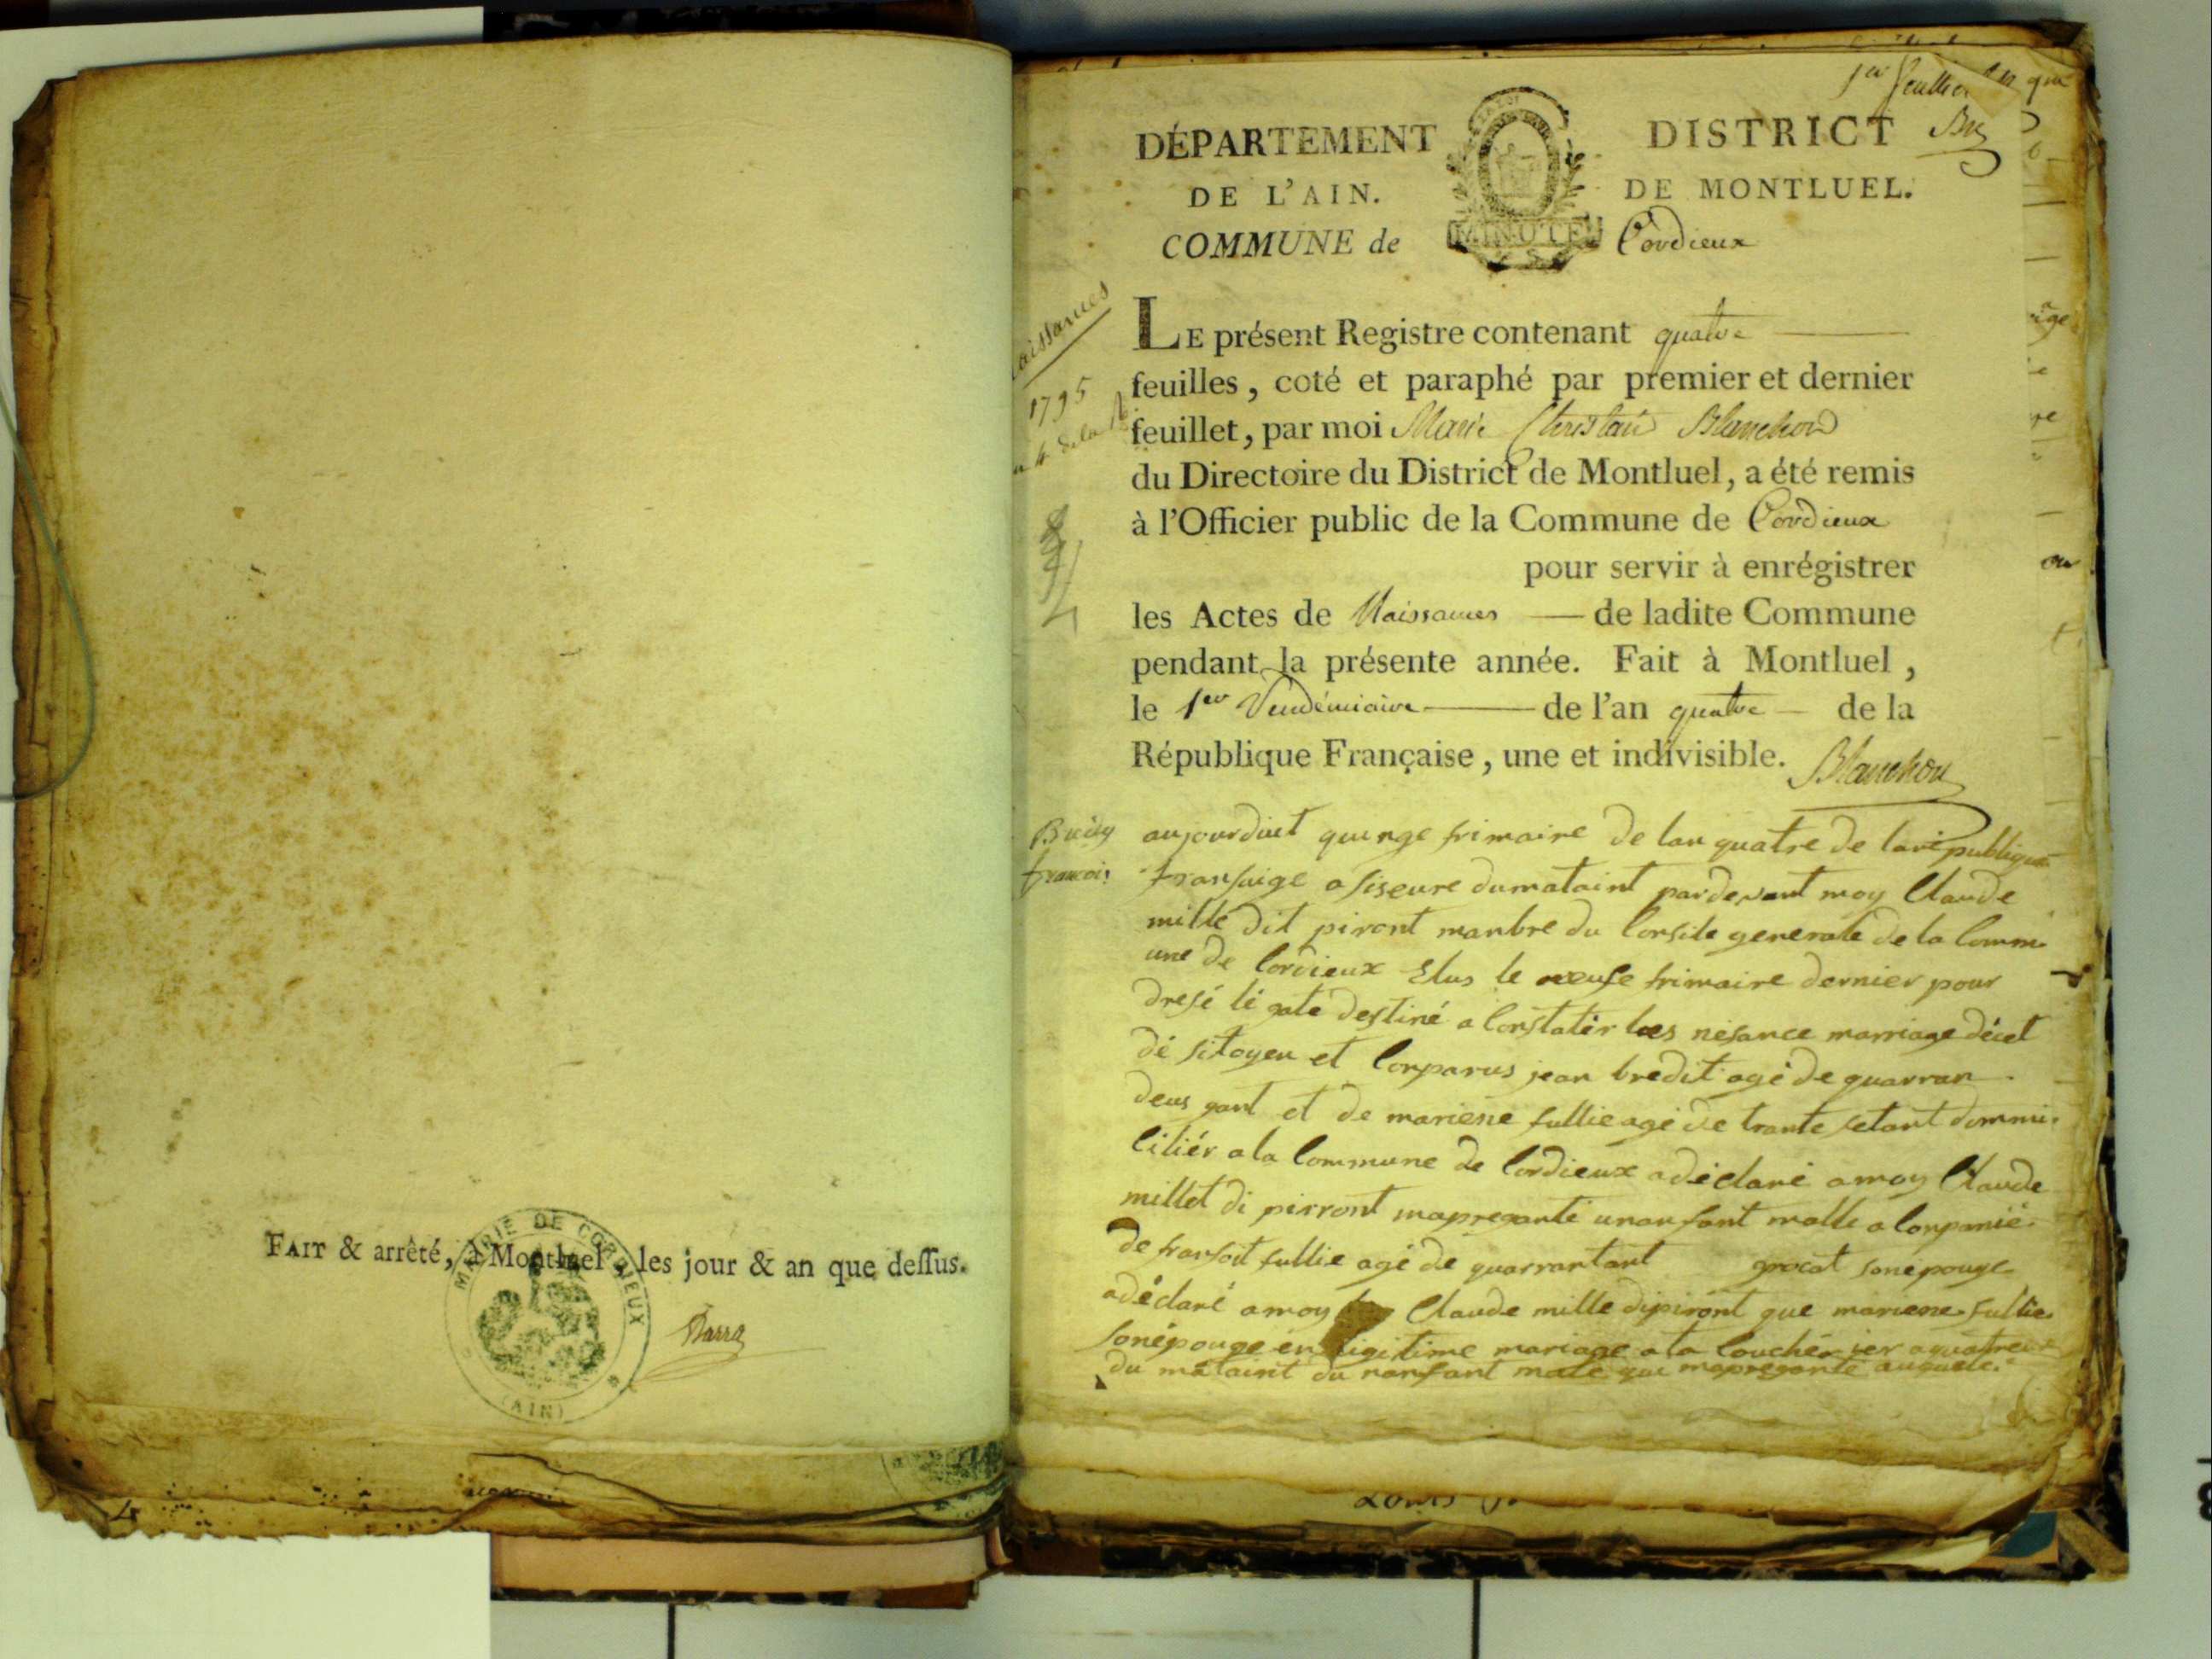 FAIT & arrêté, à Montluel, les jour & an que dessus.
MAIRIE DE CORDIEUX
(AIN)
Barra
1er feuillet
DÉPARTEMENT
DE L'AIN.
COMMUNE de
MINUTE
DISTRICT
DE MONTLUEL.
Cordieux
aissances
1795
4 de la
LE présent Registre contenant quatre
feuilles, coté et paraphé par premier et dernier
feuillet, par moi Marie Christain Blanchon
du Directoire du District de Montluel, a été remis
à l'Officier public de la Commune de Cordieux
pour servir à enrégistrer
les Actes de Naissances — de ladite Commune
pendant la présente année. Fait à Montluel,
le 1er Vendémiaire — de l'an quatre — de la
République Française, une et indivisible.
Blanchon
francois
aujourduit quinze frimaire de lan quatre de la republique
fransaige a siseure du mataint pardevant moy Claude
mille dit piront manbre du Consile generale de la Comm
une de Cordieux Elus le neufe frimaire dernier pour
dresé lé gate destiné a Constatér les nesance marriage décet
dé sitoyen et Conparus jean bredit agé de quarran
deus gant et de mariene fullie agé de trante setant dommi
ciliér a la Commune de Cordieux a déclaré a moy Claude
millet di pirront mapregante unanfant malle a Conpanié
de fransoit fullie agé de quarrantant grocat son epouge
a déclaré a moy Claude mille dipiront que mariene fullie
son épouge en ligitime mariage a ta Couchér ier a quatre
du mataint du nanfant male que mapregante auquele